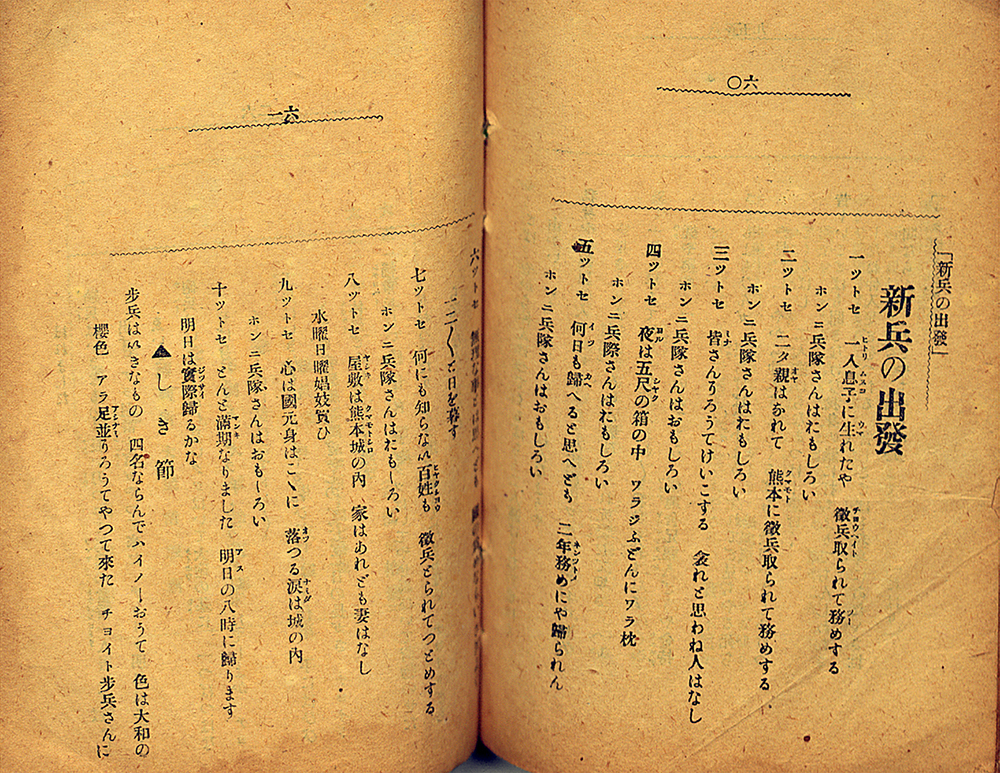 六〇
「新兵の出發」
新兵の出發
一ツトセ 一人息子に生れたや 徴兵取られて務めする
ホンニ兵隊さんはたもしろい
二ツトセ 二タ親はかれて 熊本に徴兵取られて務めする
ホンニ兵隊さんはたもしろい
三ツトセ 皆さんろうてけいこする 思わね人はなし
ホンニ兵隊さんはおもしろい
四ツトセ 夜は五尺の箱の中 ワラジふとんにワラ枕
ホンニ兵際さんはたもしろい
五ツトセ 何日も歸へると思へども 二年務めにや歸られん
ホンニ兵隊さんはおもしろい
六一
六ツトセ
と日を暮す
七ツトセ 何にも知らない百姓も 徴兵とられてつとめする
ホンニ兵隊さんはたもーろい
八ツトセ 屋敷は熊本城の内 家はあれども妻はなし
水曜日曜娼妓買ひ
九ツトセ 心は國元身はこゝに 落つる涙は城の内
ホンニ兵隊さんはおもーろい
十ツトセ とんと滿期なりました 明日の八時に歸ります
明日は實際歸るかな
▲しき節
歩兵はいきなもの 四名ならんでハイノーおうて 色は大和の
櫻色 アラ足並りろうてやつて來た チヨイト歩兵さんに